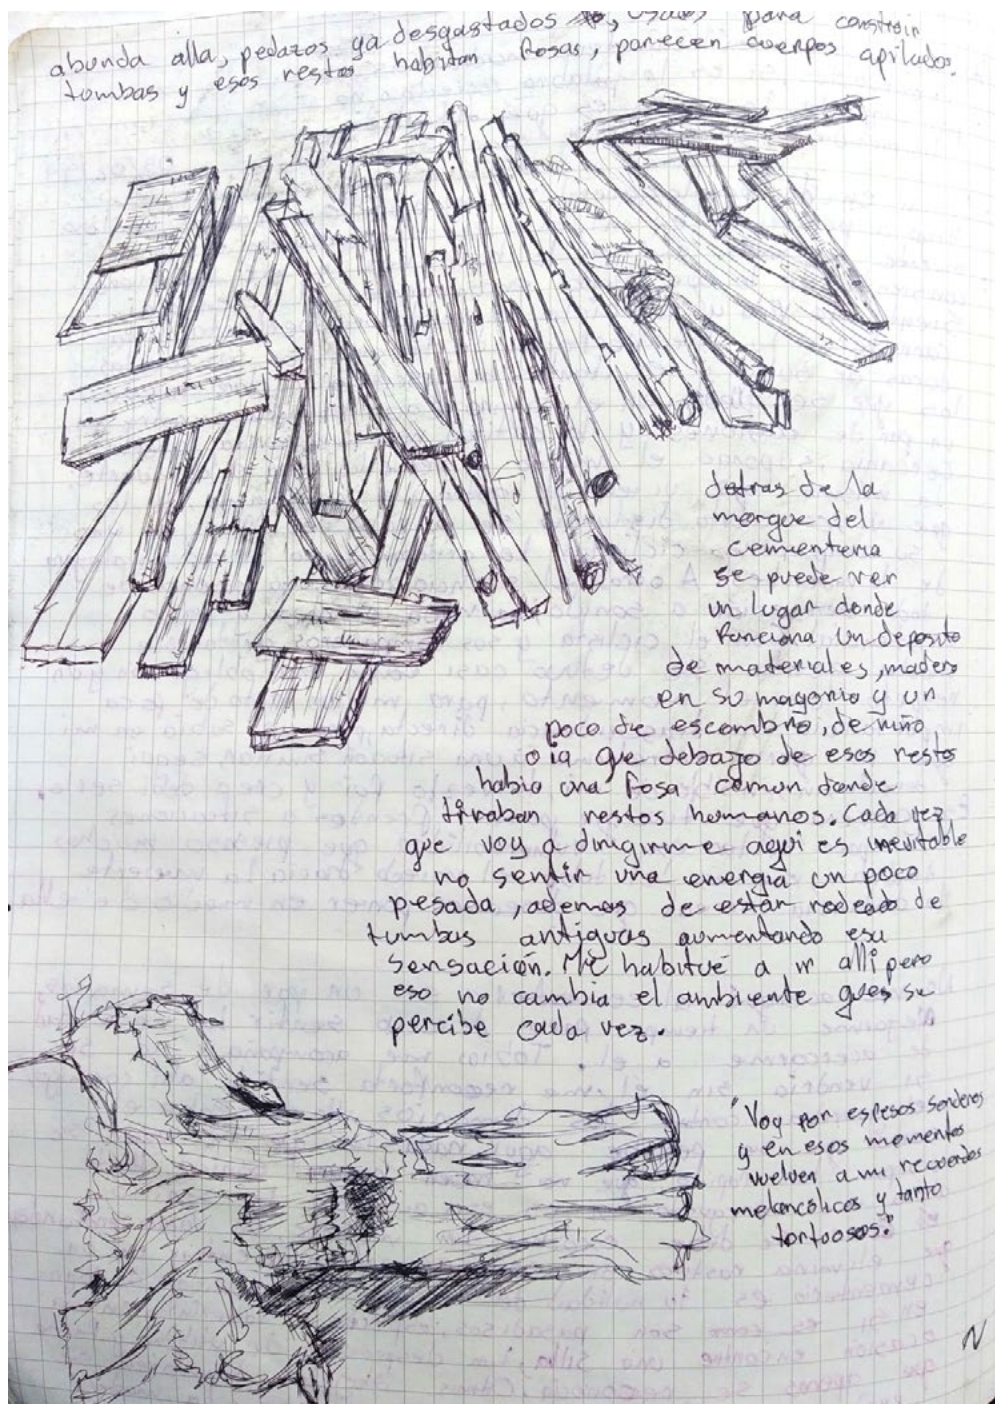 abunda alla, pedazos ya desgastados, usados para construir
tumbas y esos restos habitan fosas, parecen cuerpos apilados.
detras de la
morgue del
cementerio
se puede ver
un lugar donde
funciona un deposito
de materiales, madera
en su mayoria y un
poco de escombro, de niño
oia que debajo de esos restos
habia una fosa comun donde
tiraban restos humanos. Cada vez
que voy a dirigirme aqui es inevitable
no sentir una energia un poco
pesada, ademas de estar rodeado de
tumbas antiguas aumentando esa
sensación. Me habitué a ir alli pero
eso no cambia el ambiente ques se
percibe cada vez.
"Voy por espesos senderos
y en esos momentos
vuelven a mi recuerdos
melancólicos y tanto
tortuosos."
N